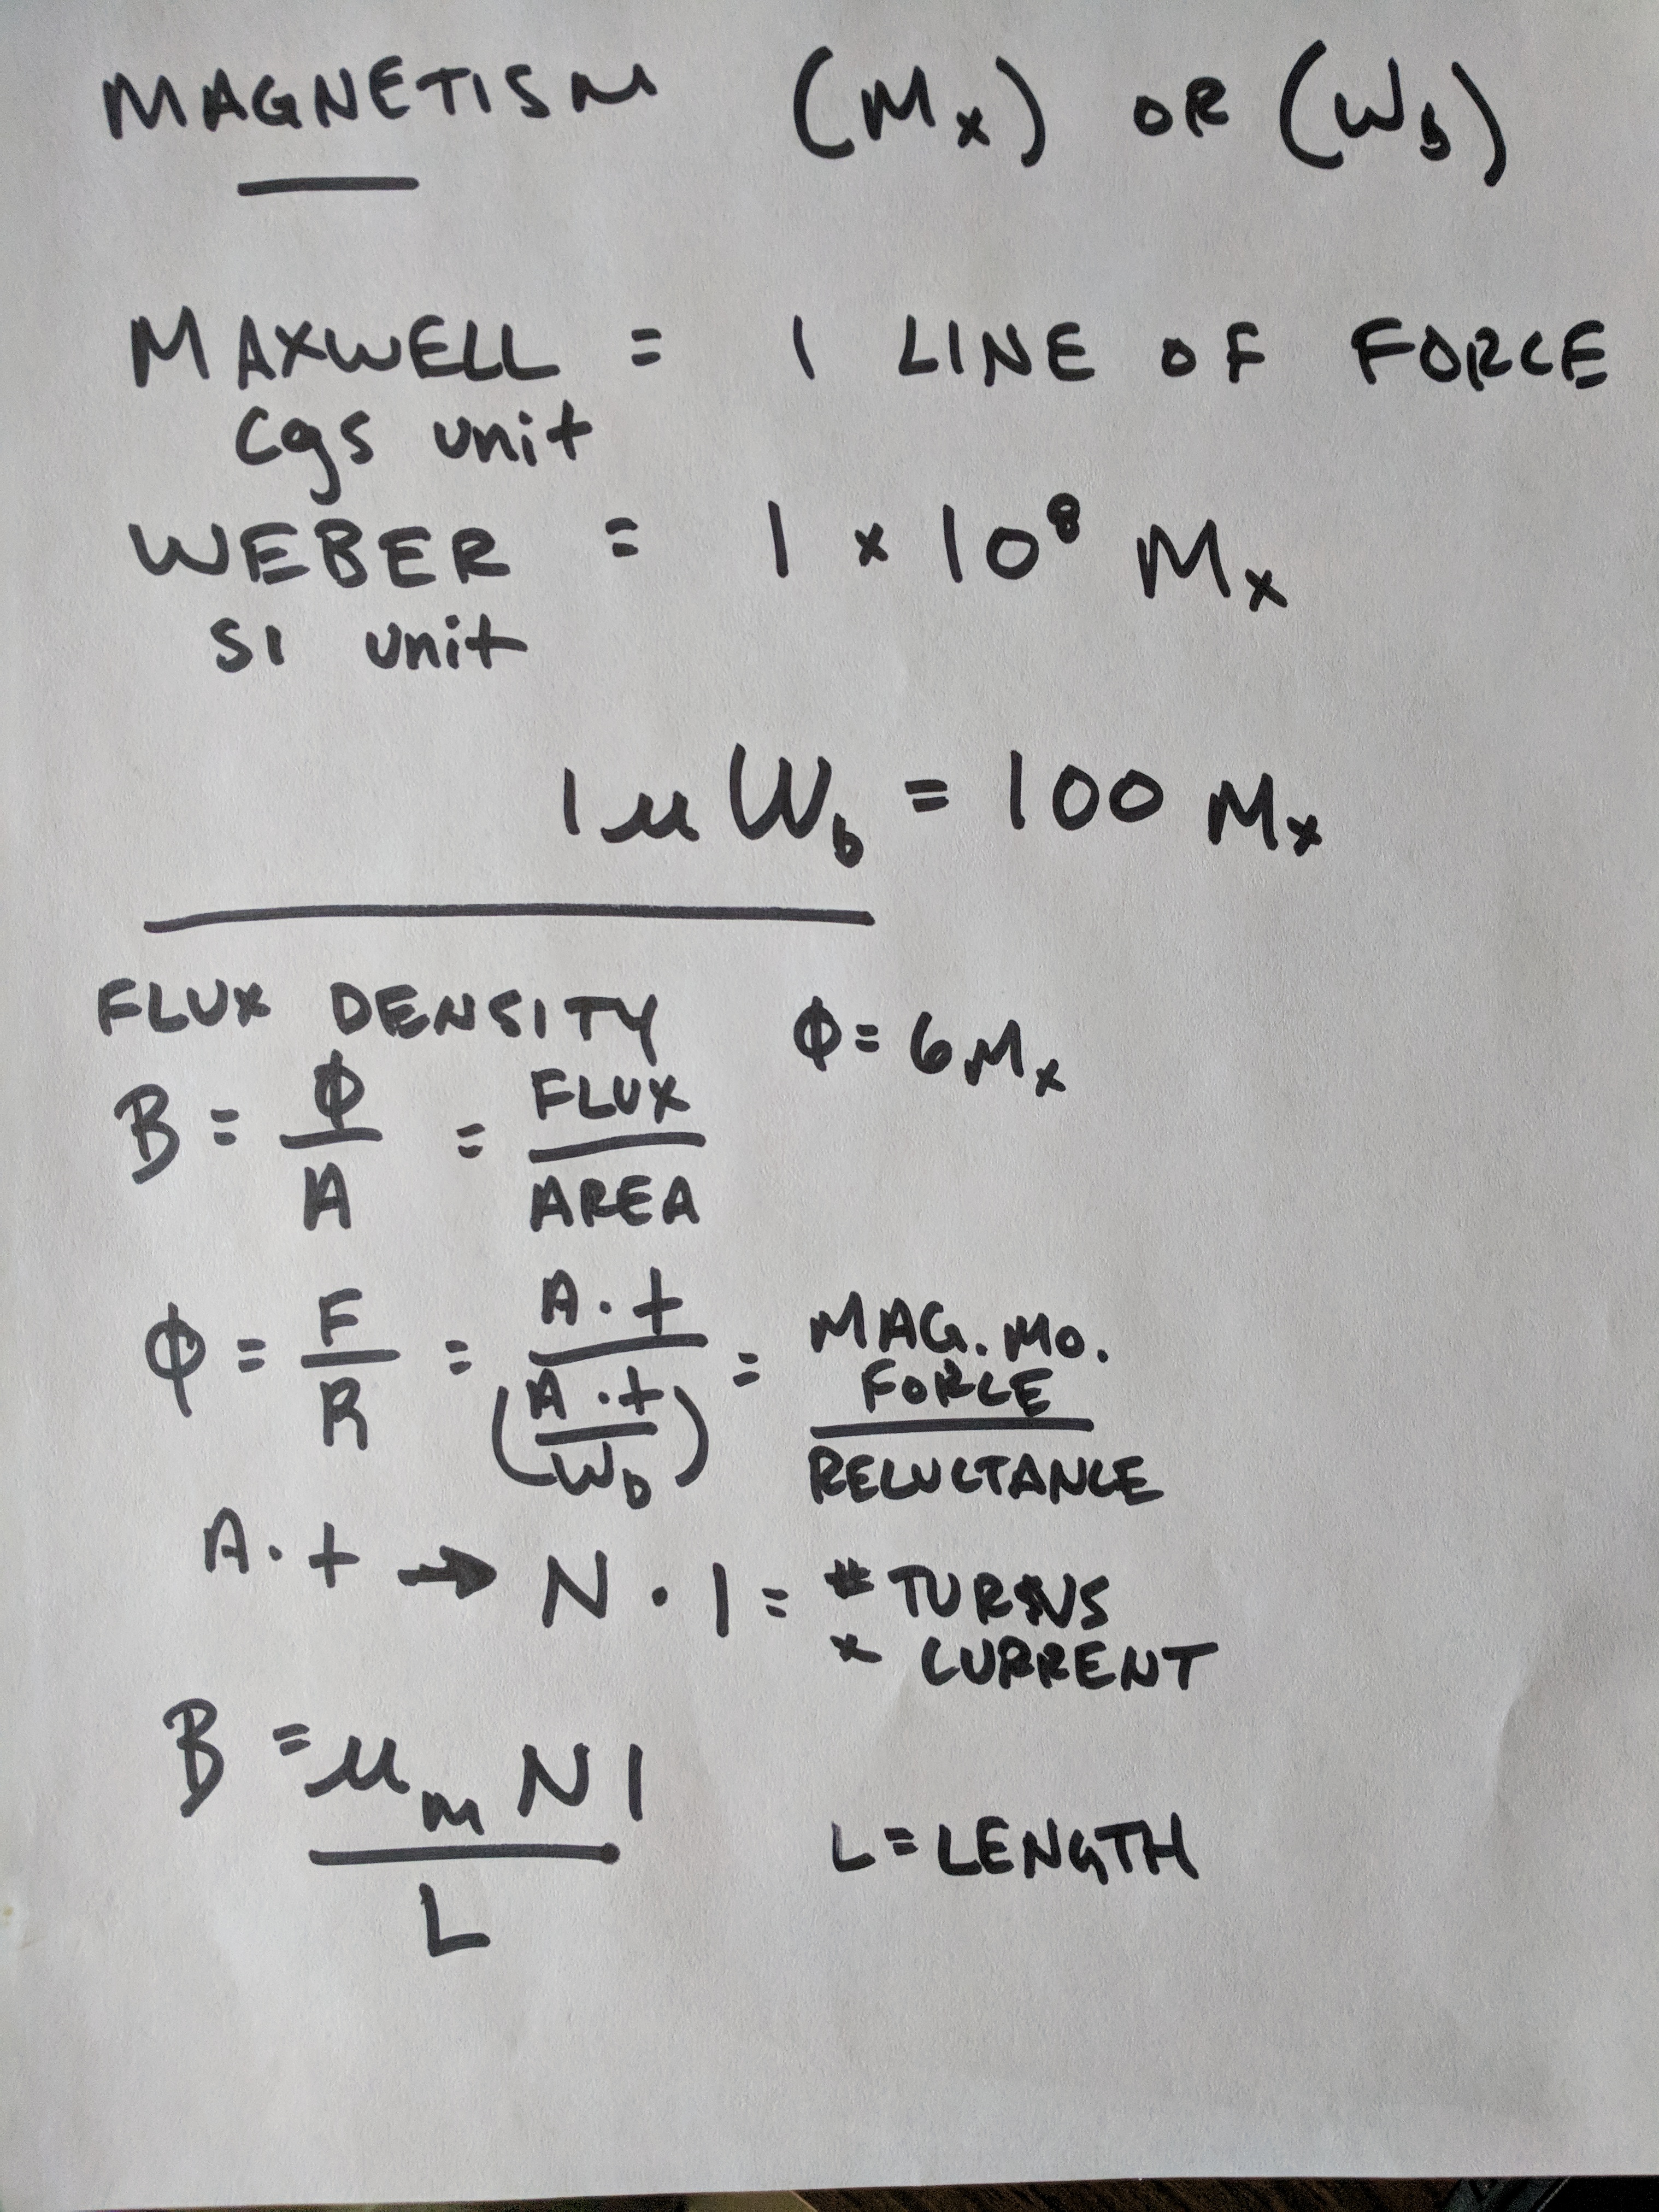 MAGNETISM (Mx) OR (Wb)
MAXWELL = 1 LINE OF FORCE
cgs unit
WEBER = 1 x 10⁸ Mx
SI unit
1 μ Wb = 100 Mx
FLUX DENSITY Φ = 6 Mx
B = Φ/A = FLUX/AREA
Φ = F/R = A·t/(A·t/Wb) = MAG. MO. FORCE/RELUCTANCE
A·t → N·I = # TURNS
x CURRENT
B = μm NI/L L = LENGTH